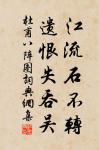 江流石不轉
遺恨失吞吳
杜甫八陣圖詞典網集